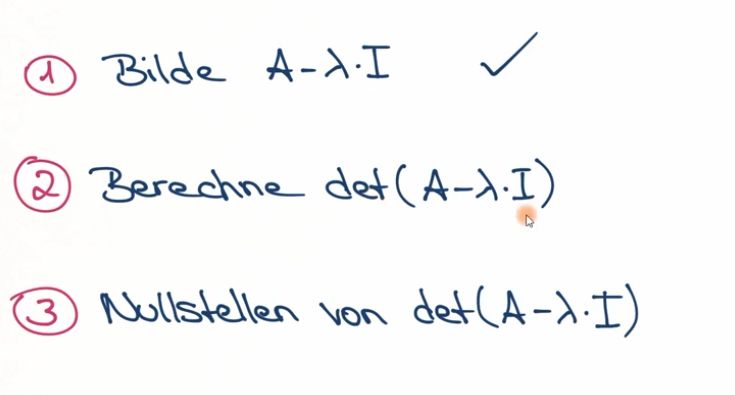 1 Bilde A-λ·I ✓
2 Berechne det(A-λ·I)
3 Nullstellen von det(A-λ·I)